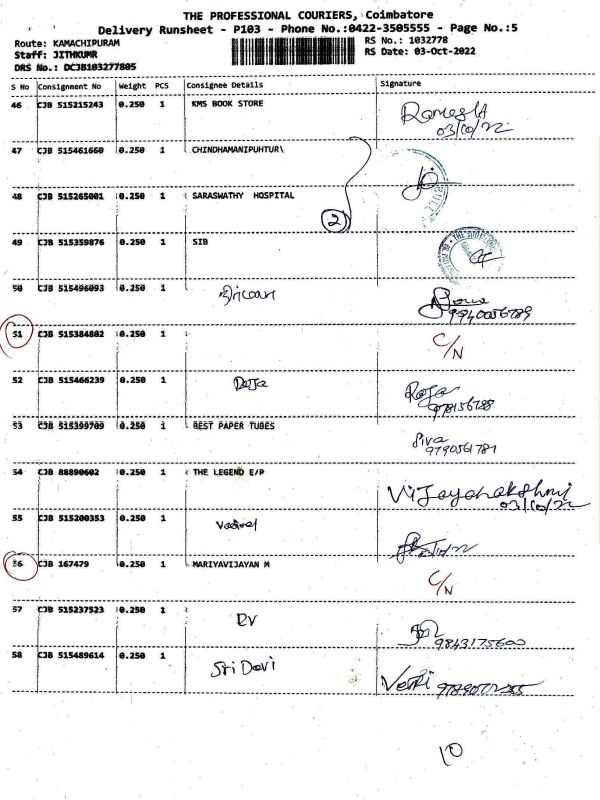 THE PROFESSIONAL COURIERS, Coimbatore
Delivery Runsheet - P103 - Phone No.:0422-3505555 - Page No.:5
Route: KAMACHIPURAM
RS No.: 1032778
Staff: JITHKUMR
RS Date: 03-Oct-2022
DRS No.: DCJB103277805
S No Consignment No Weight PCS Consignee Details Signature
46 CJB 515215243 0.250 1 KMS BOOK STORE
03/10/22
47 CJB 515461660 0.250 1 CHINDHAMANIPUHTUR\
48 CJB 515265001 0.250 1 SARASWATHY HOSPITAL
2
49 CJB 515359876 0.250 1 SIB
50 CJB 515496093 0.250 1
9940056789
51 CJB 515384802 0.250 1
C/N
52 CJB 515466239 0.250 1 Raja
Raja
53 CJB 515399709 0.250 1 BEST PAPER TUBES
Siva
9790561781
54 CJB 88890602 0.250 1 THE LEGEND E/P
03/10/22
55 CJB 515200353 0.250 1
56 CJB 167479 0.250 1 MARIYAVIJAYAN M
C/N
57 CJB 515237523 0.250 1 RV
9843175600
58 CJB 515489614 0.250 1 Sri Devi
Vetri
10